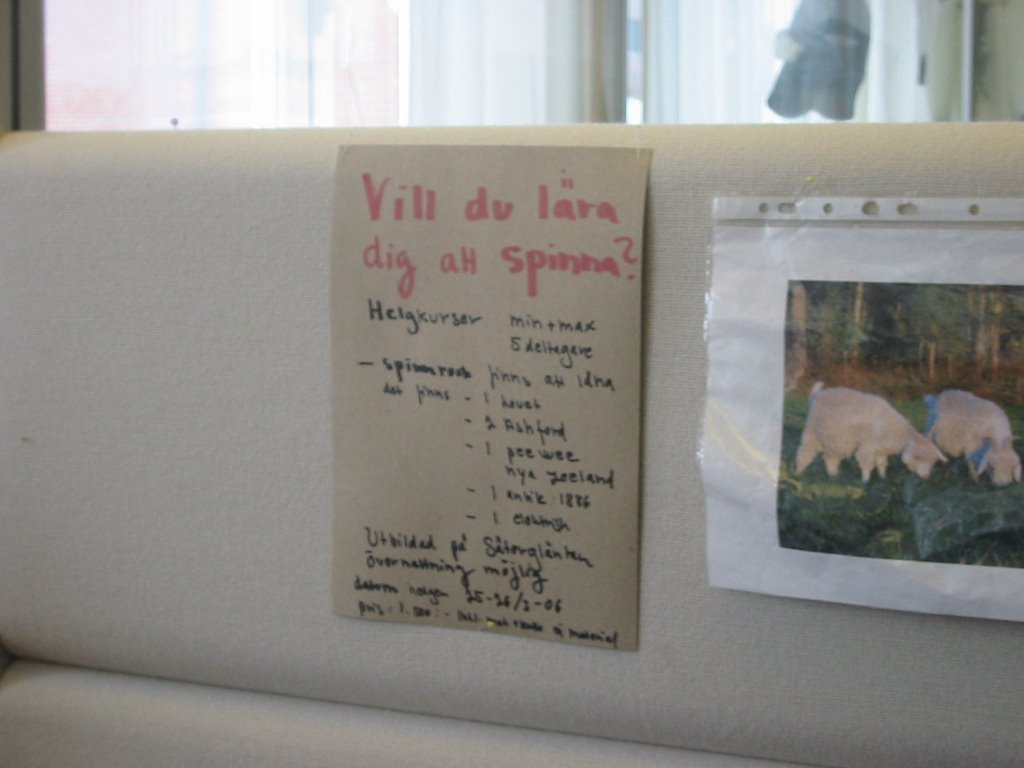 Vill du lära
dig att spinna?
Helgkurser min + max
5 deltagare
- spinnrock finns att låna
det finns - 1 
- 2 Ashford
- 1 pee wee
nya zeeland
- 1 antik 1886
- 1 elektrisk
Utbildad på Sätergläntan
övernattning möjlig
datum helgen 25-26/3-06
pris: 1.500:- inkl. mat + kaffe ej material